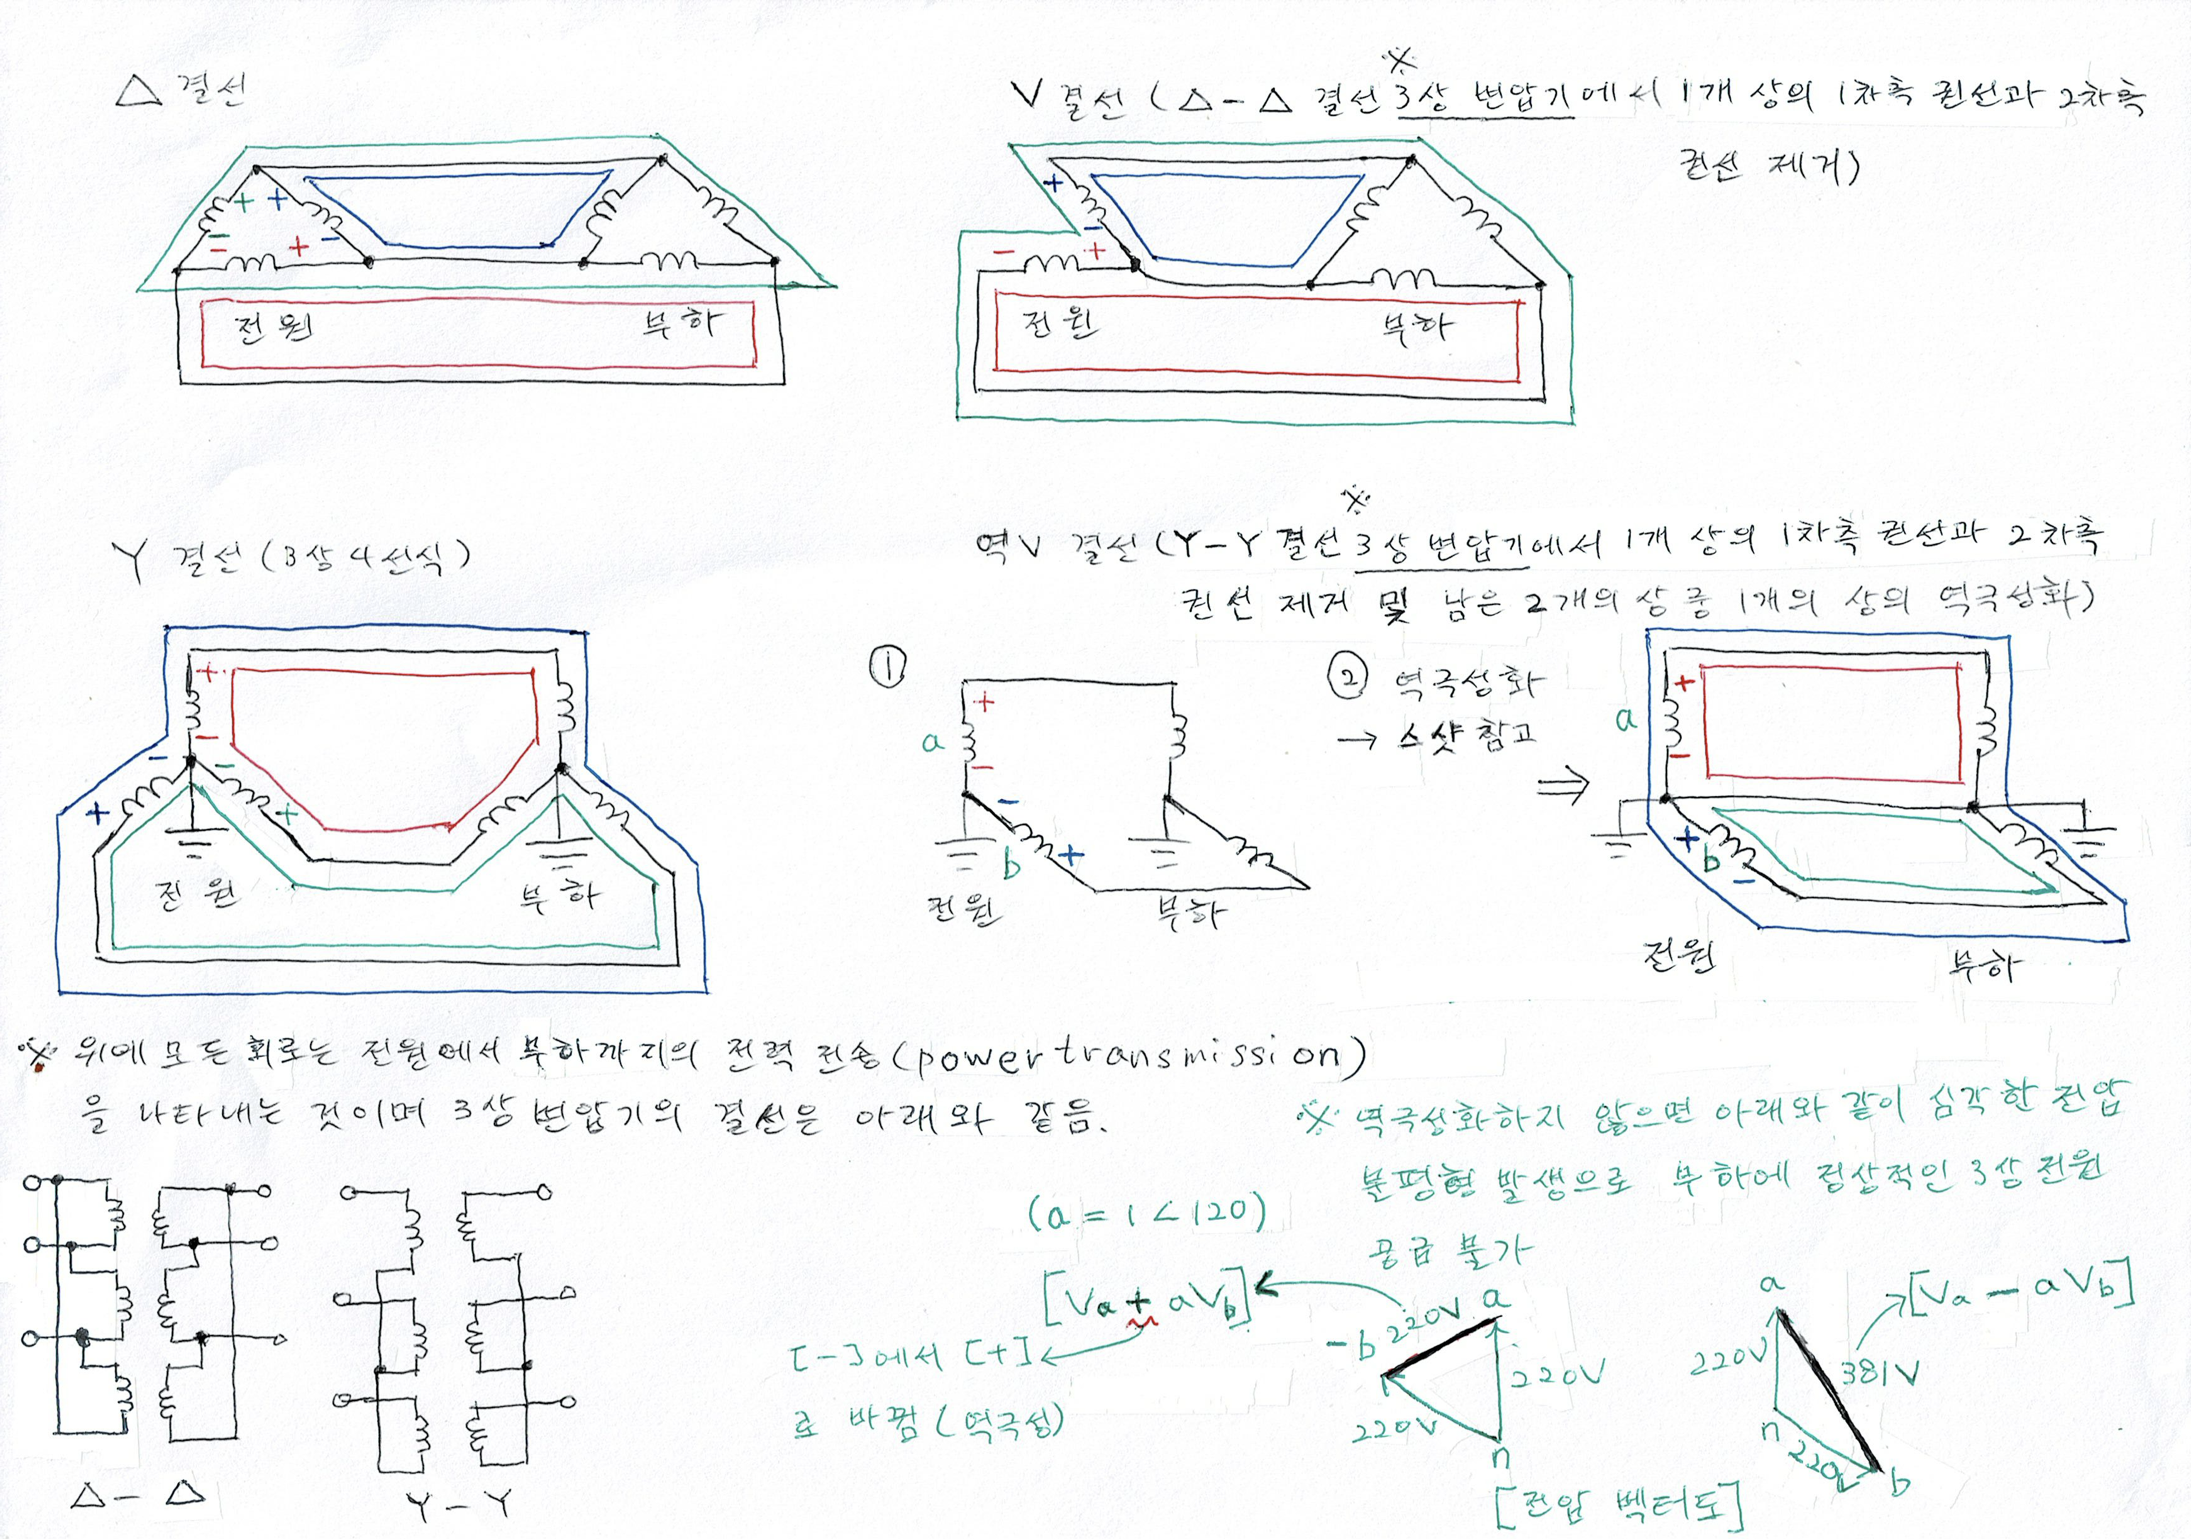 △ 결선
V 결선 ( △ - △ 결선 ※ 3상 변압기에서 1개 상의 1차측 권선과 2차측
권선 제거)
+ + - - + -
전원 부하
+ - +
전원 부하
Y 결선 (3상 4선식)
역V 결선 (Y-Y 결선 ※ 3상 변압기에서 1개 상의 1차측 권선과 2차측
권선 제거 및 남은 2개의 상 중 1개의 상의 역극성화)
+ - - - + +
전원 부하
①
a + -
- b +
전원 부하
② 역극성화
→ 스샷 참고
⇒
a + -
+ b -
전원 부하
※ 위에 모든 회로는 전원에서 부하까지의 전력 전송(power transmission)
을 나타내는 것이며 3상 변압기의 결선은 아래와 같음.
※ 역극성화하지 않으면 아래와 같이 심각한 전압
불평형 발생으로 부하에 정상적인 3상 전원
공급 불가
(a = 1 < 120)
[Va + aVb]
[-]에서 [+]
로 바뀜 (역극성)
a
-b 220V
220V
220V
n
a
[Va - aVb]
220V
381V
n
220V
b
[전압 벡터도]
△ - △
Y - Y